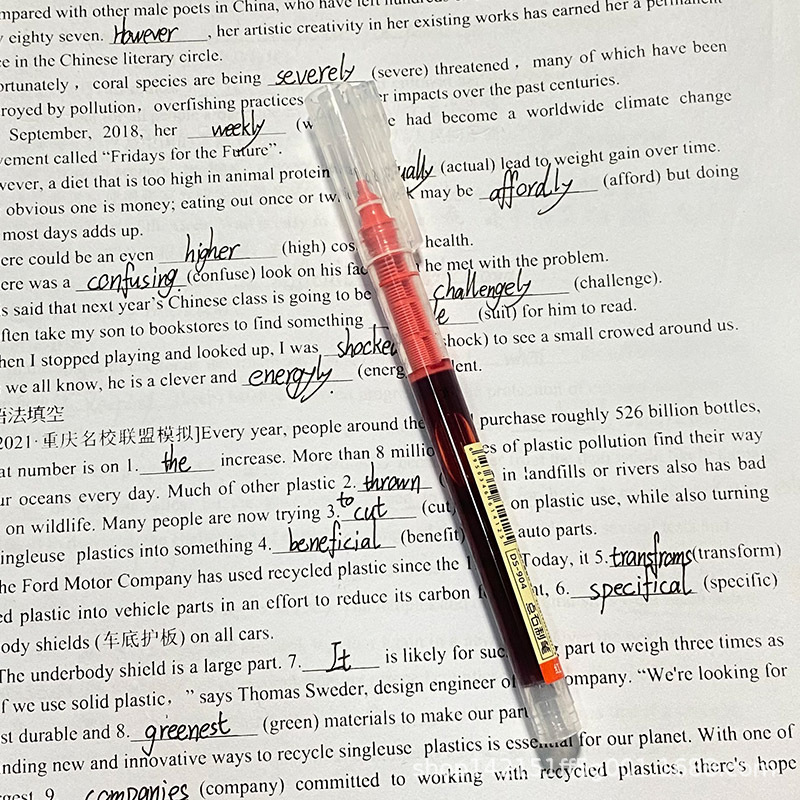 mpared with other male poets in China, who have left hundreds
y eighty seven. However, her artistic creativity in her existing works has earned her a permanent
e in the Chinese literary circle.
ortunately, coral species are being severely (severe) threatened, many of which have been
royed by pollution, overfishing practices r impacts over the past centuries.
September, 2018, her weekly (w e had become a worldwide climate change
vement called “Fridays for the Future”.
wever, a diet that is too high in animal protein ually (actual) lead to weight gain over time.
obvious one is money; eating out once or tw k may be affordly (afford) but doing
most days adds up.
ere could be an even higher (high) cos health.
ere was a confusing (confuse) look on his fac he met with the problem.
s said that next year’s Chinese class is going to be challengely (challenge).
ften take my son to bookstores to find something le (suit) for him to read.
hen I stopped playing and looked up, I was shocked shock) to see a small crowed around us.
we all know, he is a clever and energyly (energ lent.
语法填空
2021·重庆名校联盟模拟]Every year, people around the purchase roughly 526 billion bottles,
at number is on 1. the increase. More than 8 millio es of plastic pollution find their way
ur oceans every day. Much of other plastic 2. thrown in landfills or rivers also has bad
on wildlife. Many people are now trying 3. to cut (cut on plastic use, while also turning
singleuse plastics into something 4. beneficial (benefit) auto parts.
he Ford Motor Company has used recycled plastic since the 1 Today, it 5. transfroms (transform)
ed plastic into vehicle parts in an effort to reduce its carbon f nt, 6. specifical (specific)
ody shields (车底护板) on all cars.
The underbody shield is a large part. 7. It is likely for suc part to weigh three times as
f we use solid plastic, ” says Thomas Sweder, design engineer of ompany. “We're looking for
st durable and 8. greenest (green) materials to make our part
nding new and innovative ways to recycle singleuse plastics is essential for our planet. With one of
rgest 9. companies (company) committed to working with recycled plastics, there's hope
6950396814125
DS-904
点石制笔